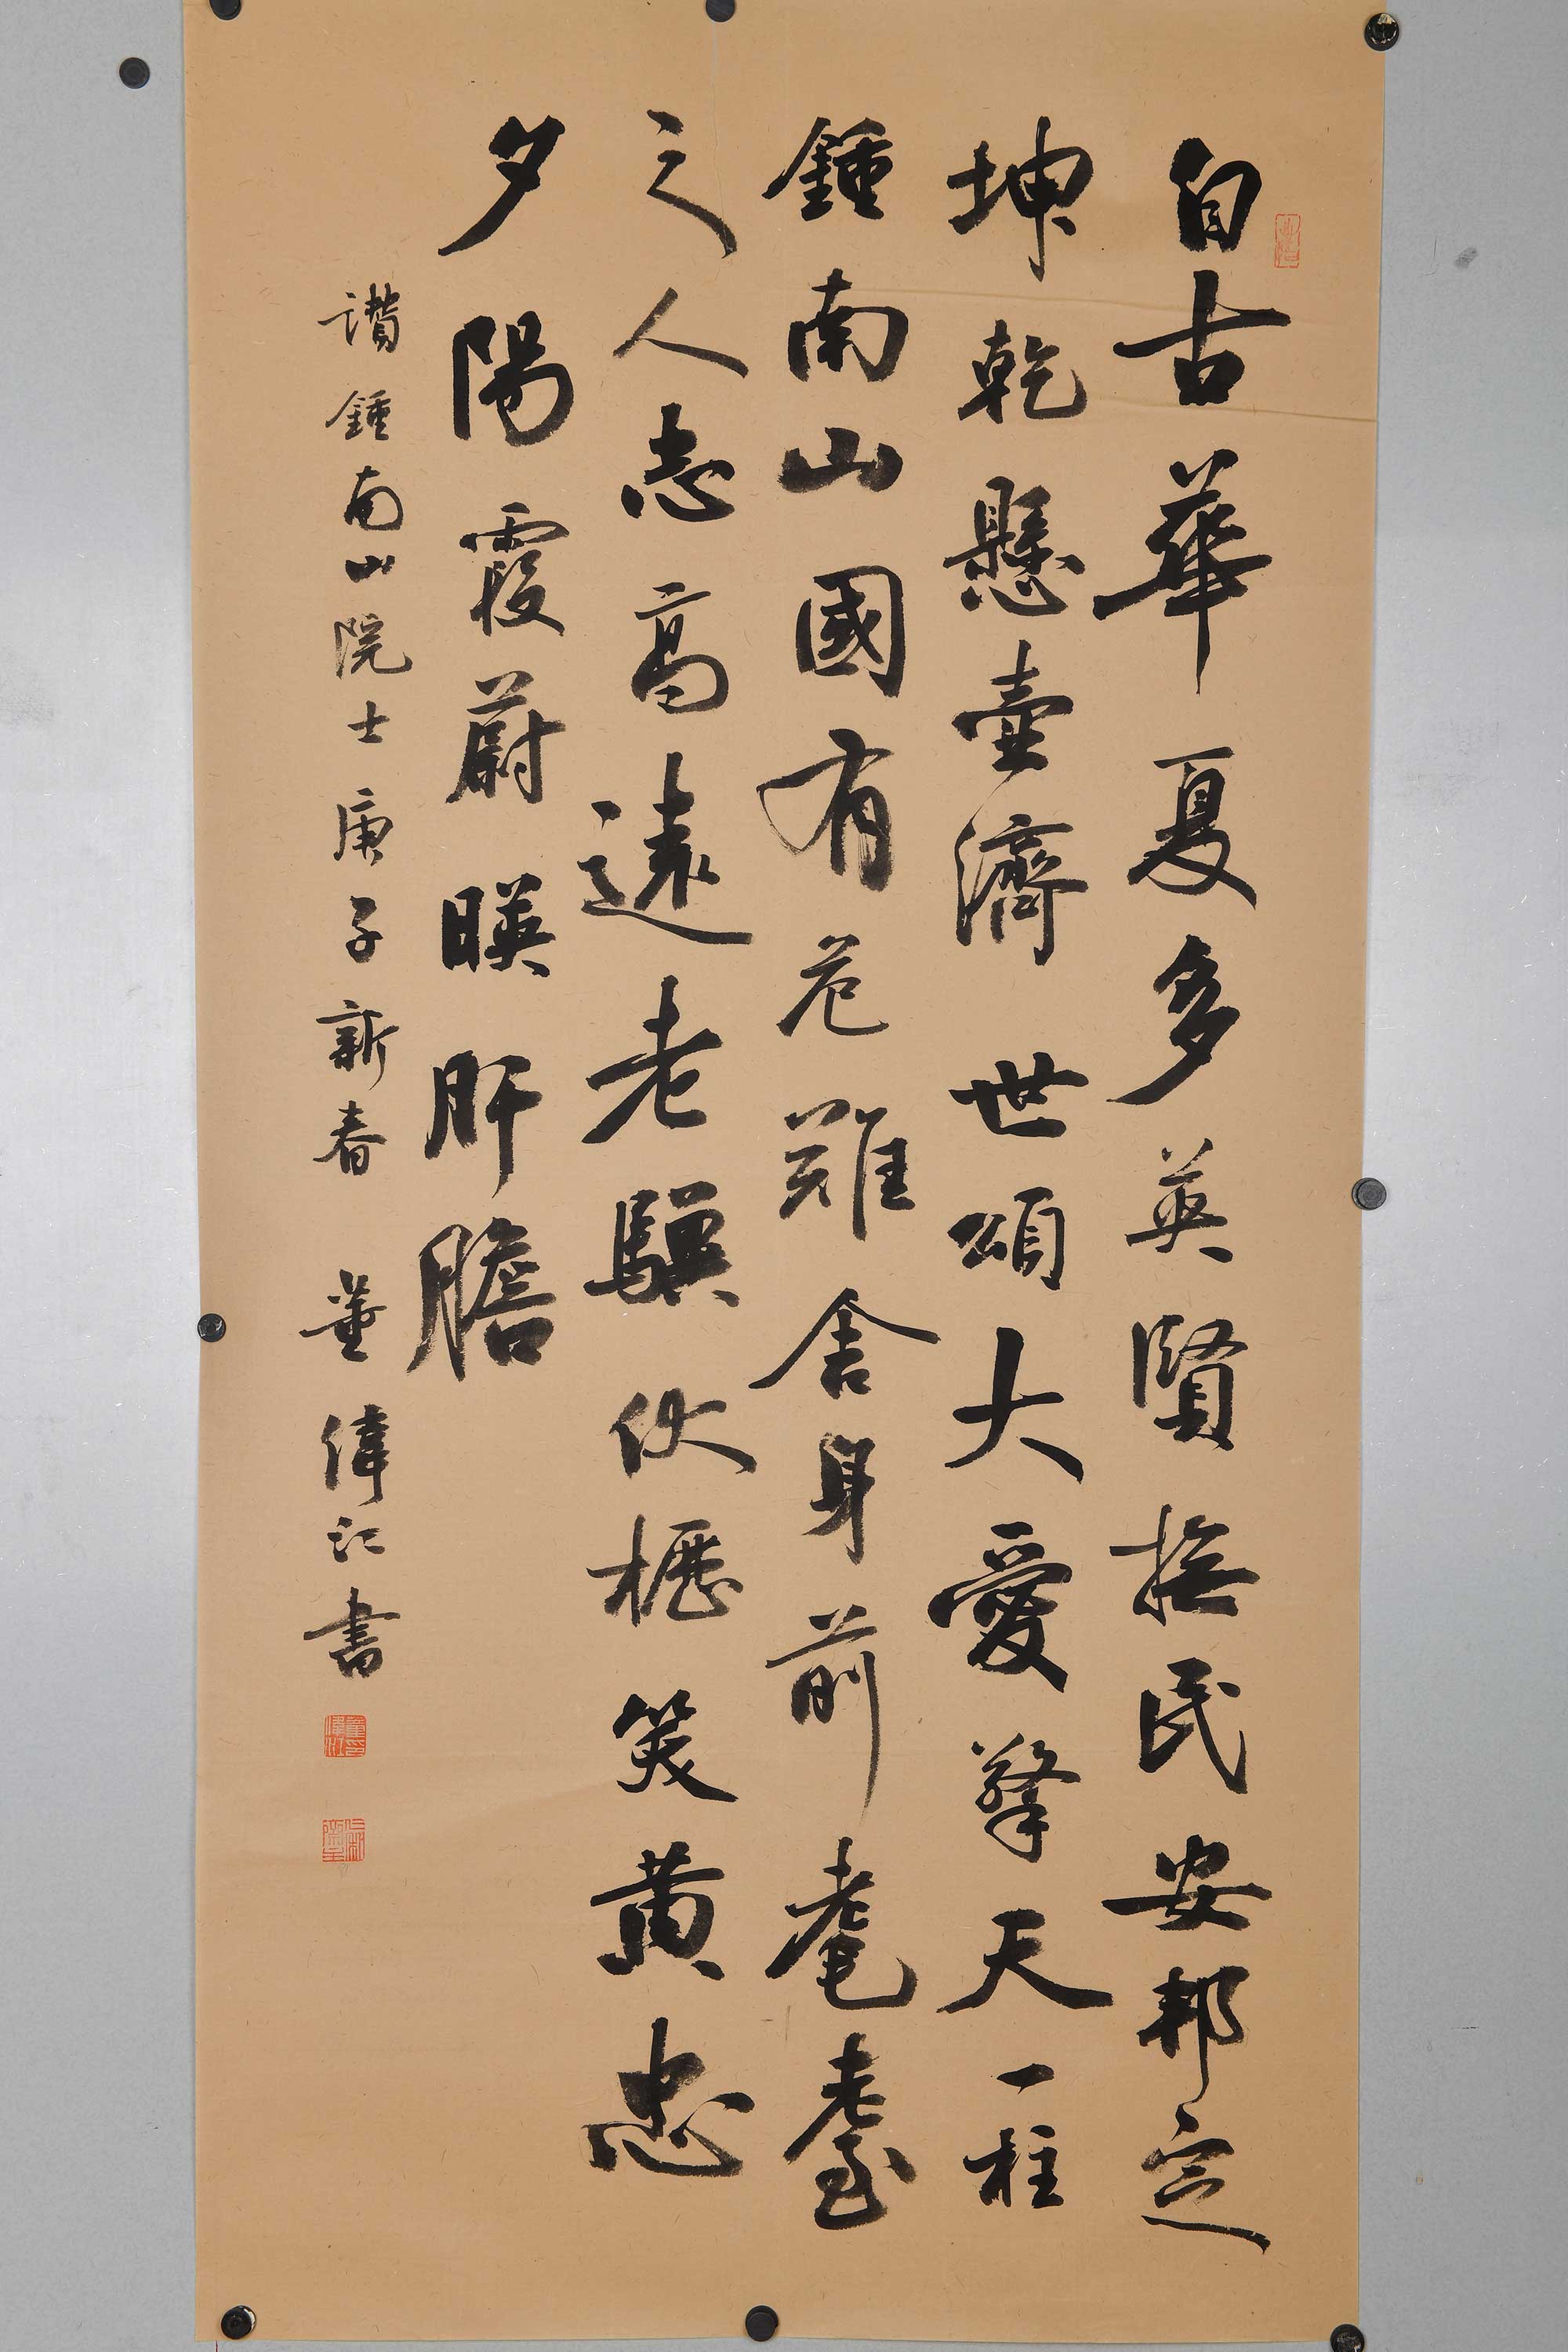 自古華夏多英賢撫民安邦定
坤乾懸壺濟世頌大愛擎天一柱
鍾南山國有危難舍身前耄耋
之人志高遠老驥伏櫪笑黄忠
夕陽霞蔚暎肝膽
讃鍾南山院士庚子新春 董偉江書